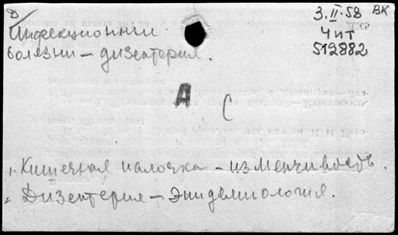 3.II.58 ВК
Инфекционные
болезни – дизентерия.
Ч ит
512882
А
С
1. Кишечная палочка – изменчивость.
2. Дизентерия – Эпидемиология.